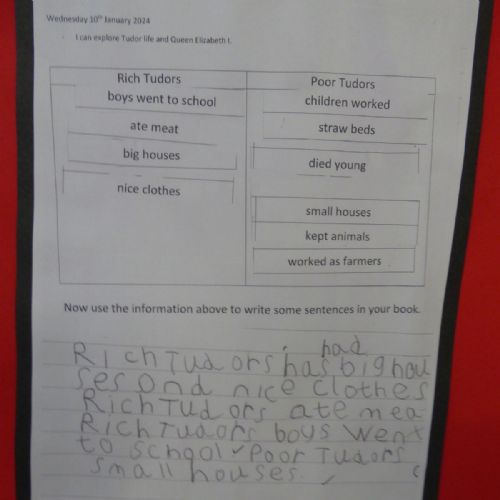 Wednesday 10th January 2024
I can explore Tudor life and Queen Elizabeth I.
Rich Tudors
boys went to school
ate meat
big houses
nice clothes
Poor Tudors
children worked
straw beds
died young
small houses
kept animals
worked as farmers
Now use the information above to write some sentences in your book.
had
Rich Tudors has big hou
ses and nice clothes
Rich Tudors ate mea
Rich Tudors boys went
to school Poor Tudors
small houses.